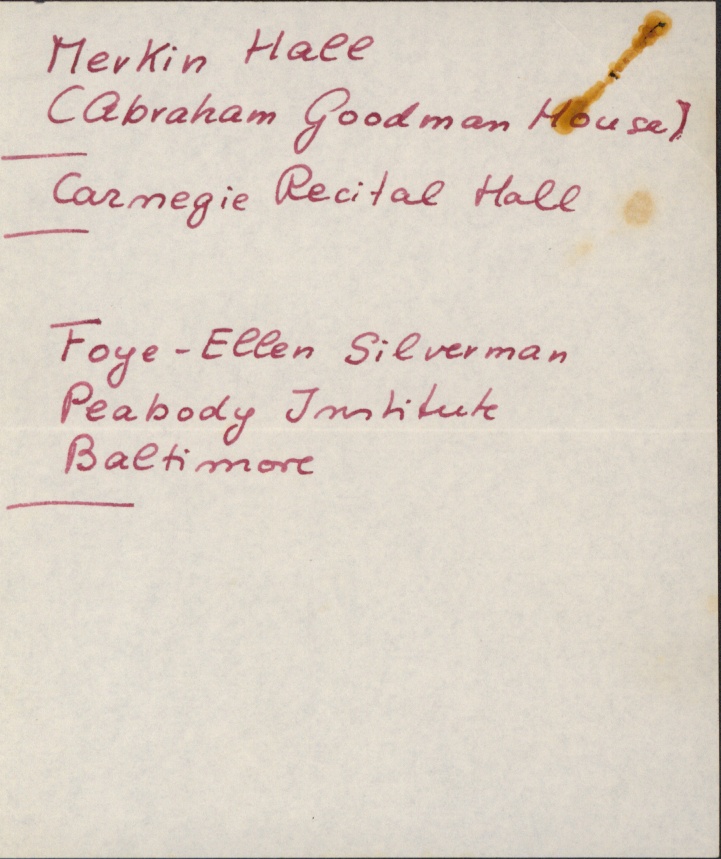 Merkin Hall
(Abraham Goodman House)
Carnegie Recital Hall
Foye-Ellen Silverman
Peabody Institute
Baltimore